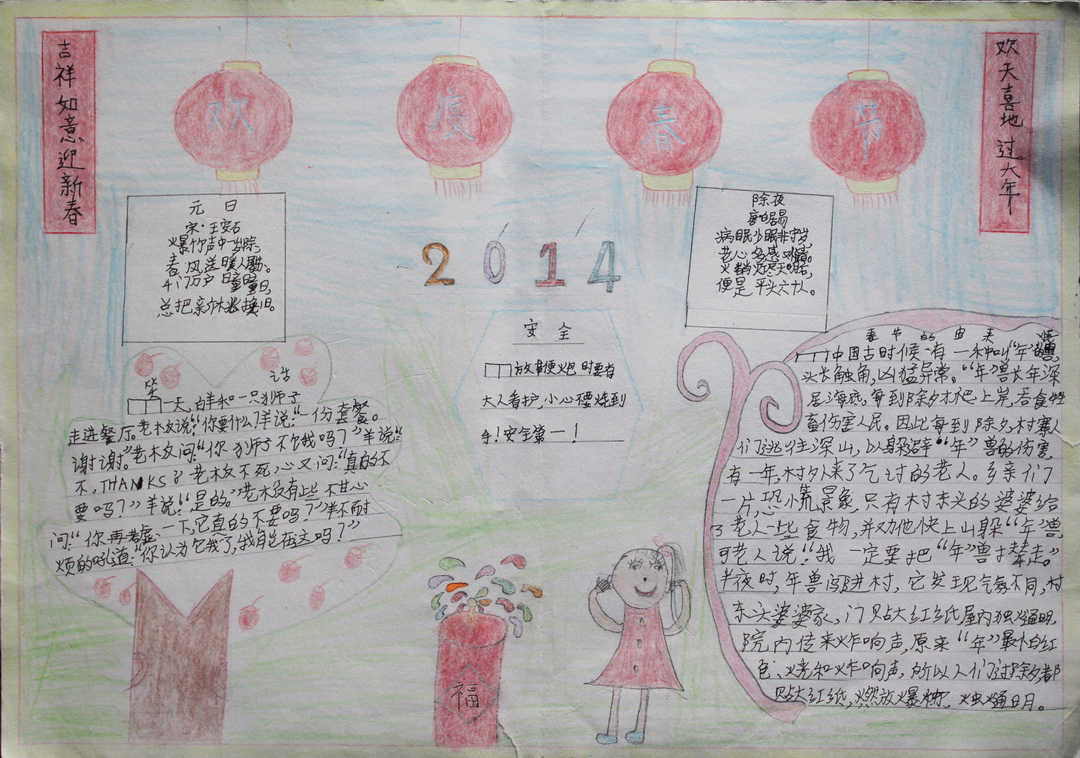 吉祥如意迎新春
欢度春节
欢天喜地过大年
元日
宋·王安石
爆竹声中一岁除,
春风送暖入屠苏。
千门万户曈曈日,
总把新桃换旧符。
2014
除夜
唐白居易
病眠少眠非守岁,
老心多感
火销灯尽天明后,
便是平头六十人。
安全
放鞭炮时要有
大人看护,小心不要烧到
手!安全第一!
笑话
一天,一只羊和一只狮子
走进餐厅。老板说:“你要什么?羊说:“一份套餐。
谢谢。”老板问:“你狮子不饿我吗?”羊说:“
不,THANKS”老板不死心又问:“真的不
要吗?”羊说:“是的。”老板有些不甘心
问:“你再考虑一下,它真的不要吗?”羊不耐
烦的吼道:“你认为它饿了,我能在这吗?”
春节的由来
中国古时候有一种叫“年”的兽,
头长触角,凶猛异常。“年”兽长年深
居海底,每到除夕才爬上岸,吞食牲
畜伤害人民。因此每到除夕,村寨人
们逃往深山,以躲辟“年”兽的伤害,
有一年,村外来了乞讨的老人。乡亲们
一片恐慌景象,只有村东头的婆婆给
了老人一些食物,并劝他快上山躲“年”兽,
可老人说“我一定要把“年”兽撵走。”
半夜时,年兽闯进村,它发现气氛不同,村
东头婆婆家,门贴大红纸屋内独火通明,
院内传来炸响声,原来“年”最怕红
色、火光和炸响声,所以人们过除夕,都
贴大红纸,燃放爆竹,烛火通明。
福